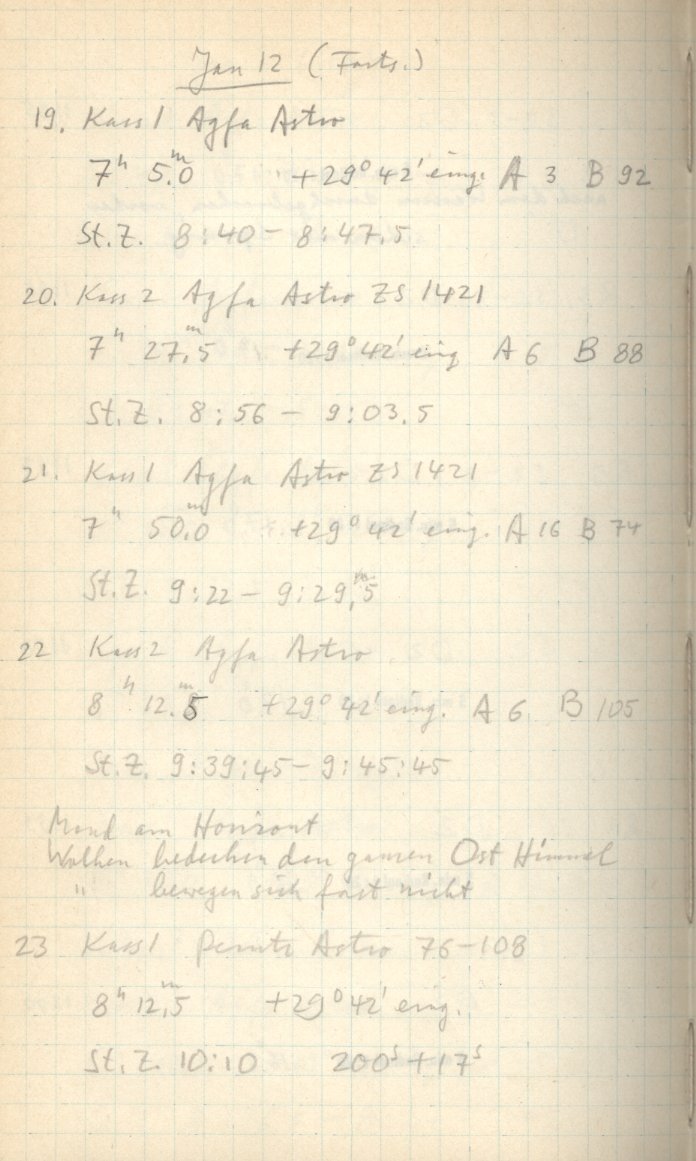 Jan 12 (Forts.)
19. Kass 1 Agfa Astro
7h 5.m0 +29° 42' eing. A 3 B 92
St.Z. 8:40 – 8:47.5
20. Kass 2 Agfa Astro ZS 1421
7h 27.m5 +29° 42' eing A 6 B 88
St.Z. 8:56 – 9:03.5
21. Kass 1 Agfa Astro ZS 1421
7h 50.m0 +29° 42' eing. A 16 B 74
St.Z. 9:22 – 9:29,m5
22 Kass 2 Agfa Astro
8h 12.m5 +29° 42' eing. A 6 B 105
St.Z. 9:39:45 – 9:45:45
Mond am Horizont
Wolken bedecken den ganzen Ost Himmel
" bewegen sich fast nicht
23 Kass 1 Perutz Astro 76–108
8h 12,m5 +29° 42' eing.
St.Z. 10:10 200s + 17s